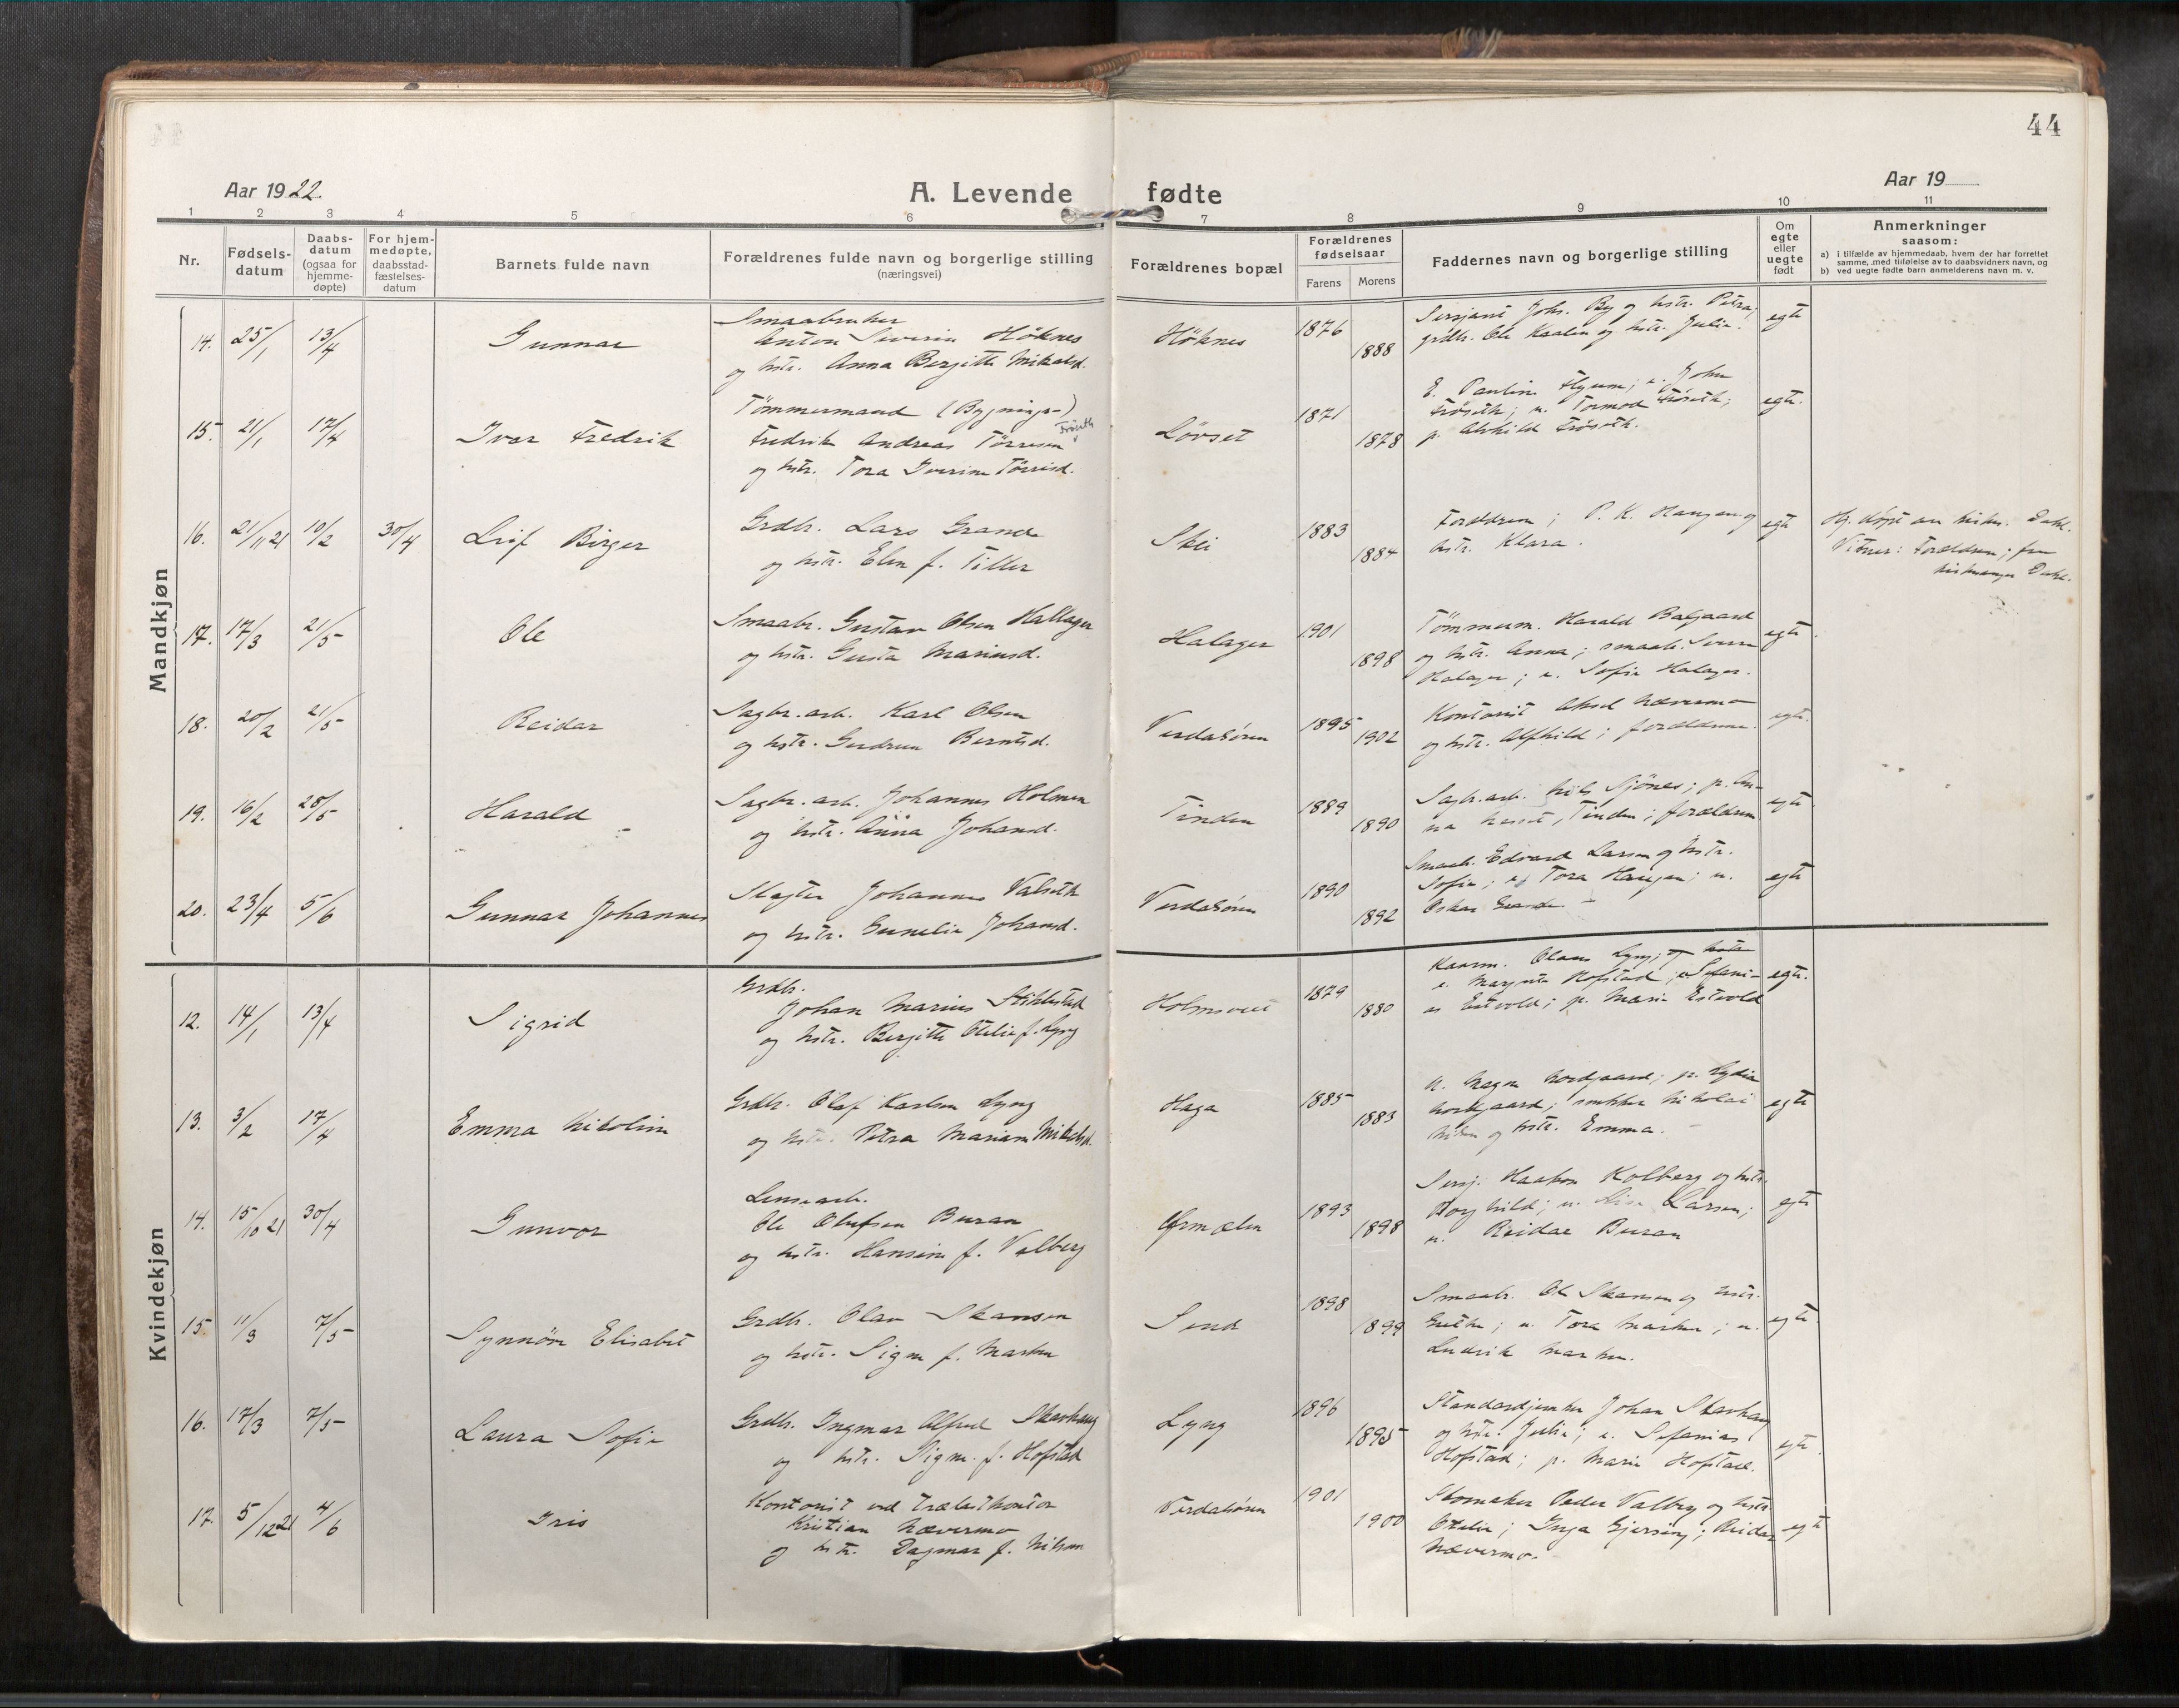 44
Aar 1922
A. Levende fødte
Aar 19
1 2 3 4 5 6 7 8 9 10 11
Nr.
Fødsels-
datum
Daabs-
datum
(ogsaa for
hjemme-
døpte)
For hjem-
medøpte,
daabsstad-
fæstelses-
datum
Barnets fulde navn
Forældrenes fulde navn og borgerlige stilling
(næringsvei)
Forældrenes bopæl
Forældrenes
fødselsaar
Farens Morens
Faddernes navn og borgerlige stilling
Om
egte
eller
uegte
født
Anmerkninger
saasom:
a) i tilfælde av hjemmedaab, hvem der har forrettet
samme, med tilføielse av to daabsvidners navn, og
b) ved uegte fødte barn anmelderens navn m. v.
Mandkjøn
14. 25/1 13/4 Gunnar
Smaabruker
Anton Severin Höknes
og hstr. Anna Bergitte Mikalsd.
Höknes 1876 1888
Sersjant Johs. By og hstr. Petra,
grdbr. Ole Kaalen og hstr. Julie.
egte
15. 21/1 17/4 Ivar Fredrik
Tömmermand (Bygnings-)
Fredrik Andreas Törresen Fröseth
og hstr. Tora Iverine Törrisd.
Lövset 1871 1878
E. Pauline Flyum; u. John
Fröseth; u. Tormod Fröseth;
p. Alvhild Fröseth.
egte.
16. 21/11 21 19/2 30/4 Leif Birger
Grdbr. Lars Grande
og hstr. Elen f. Tiller
Skei 1883 1884
Forældrene; P. K. Haugan og
hstr. Klara.
egte
Hj. döpt av kirkes. Dahl.
Vitner: Forældrene; fru
kirkesanger Dahl.
17. 17/3 21/5 Ole
Smaabr. Gustav Olsen Hallager
og hstr. Gusta Mariusd.
Halager 1901 1898
Tömmerm. Harald Balgaard
og hstr. Anna; smaab. Sverre
Halager; u. Sofie Halager.
egte.
18. 20/2 21/5 Reidar
Sagbr. arb. Karl Olsen
og hstr. Gudrun Berntsd.
Verdalsören 1895 1902
Kontorist Aksel Nævermo
og hstr. Alfhild; forældrene.
egte.
19. 16/2 28/5 Harald
Sagbr. arb. Johannes Holmen
og hstr. Anna Johansd.
Tinden 1889 1890
Sagbr. arb. Nils Sjönes; p. An-
na Nesset, Tinden; forældrene
egte
20. 23/4 5/6 Gunnar Johannes
Slagter Johannes Valseth
og hstr. Gunelie Johansd.
Verdalsören 1890 1892
Smaab. Edvard Larsen og hstr.
Sofie; Tora Haugan; u.
Oskar
egte
Kvindekjøn
12. 14/1 13/4 Sigrid
Grdbr.
Johan Marius Stiklestad
og hstr. Bergitte Otelie f. Lyng
Holmsveet 1879 1880
Kaarm. Olaus Lyng; og hstr.
e. Margrete Hofstad; e. Sefani-
as Eistvold; p. Marie Eistvold
egte.
13. 3/2 17/4 Emma Nikoline
Grdbr. Olaf Karlsen Lyng
og hstr. Petra Mariane Mikalsd.
Haga 1885 1883
u. Magne Nordgaard; p. Lydia
Nordgaard; snekker Nikolai
og hstr. Emma.
egte
14. 15/10 21 30/4 Gunvor
Lensearb.
Ole Olufsen Buran
og hstr. Hansine f. Valberg
Örmælen 1893 1898
Sersj. Haakon Kolberg og hstr.
Borghild; u. Larsen;
u. Reidar Buran
egte
15. 11/3 7/5 Synnöve Elisabet
Grdbr. Olav Skansen
og hstr. Signe f. Marken
Sende 1898 1899
Smaabr. Ole Skansen og hstr.
Grethe; u. Tora Marken; u.
Ludvik Marken.
egte
16. 17/3 7/5 Laura Sofie
Grdbr. Ingmar Alfred Skarhaug
og hstr. Signe f. Hofstad
Lyng 1896 1895
Standardjunker Johan Skarhaug
og hstr. Julie; e. Sefanias
Hofstad; p. Marie Hofstad.
egte.
17. 5/12 21 4/6 Iris
Kontorist ved trælastkontor
Kristian Nævermo
og hstr. Dagmar f. Nilsen
Verdalsören 1901 1900
Skomaker Peder Valberg og hstr.
Otelie; Inga Gjersing; Reidar
Nævermo.
egte